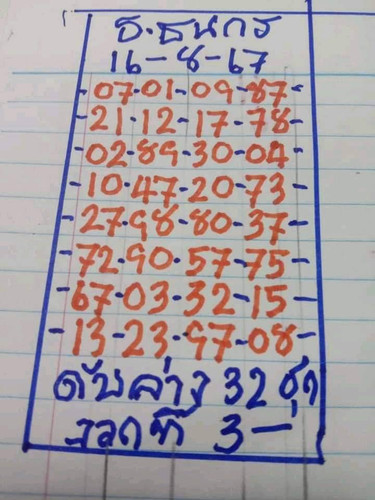 ธ.ธนกร
16-8-67
-07-01-09-87-
-21-12-17-78-
-02-89-30-04-
-10-47-20-73-
-27-98-80-37-
-72-90-57-75-
-67-03-32-15-
-13-23-97-08-
ดับล่าง 32 ชุด
งวดที่ 3-